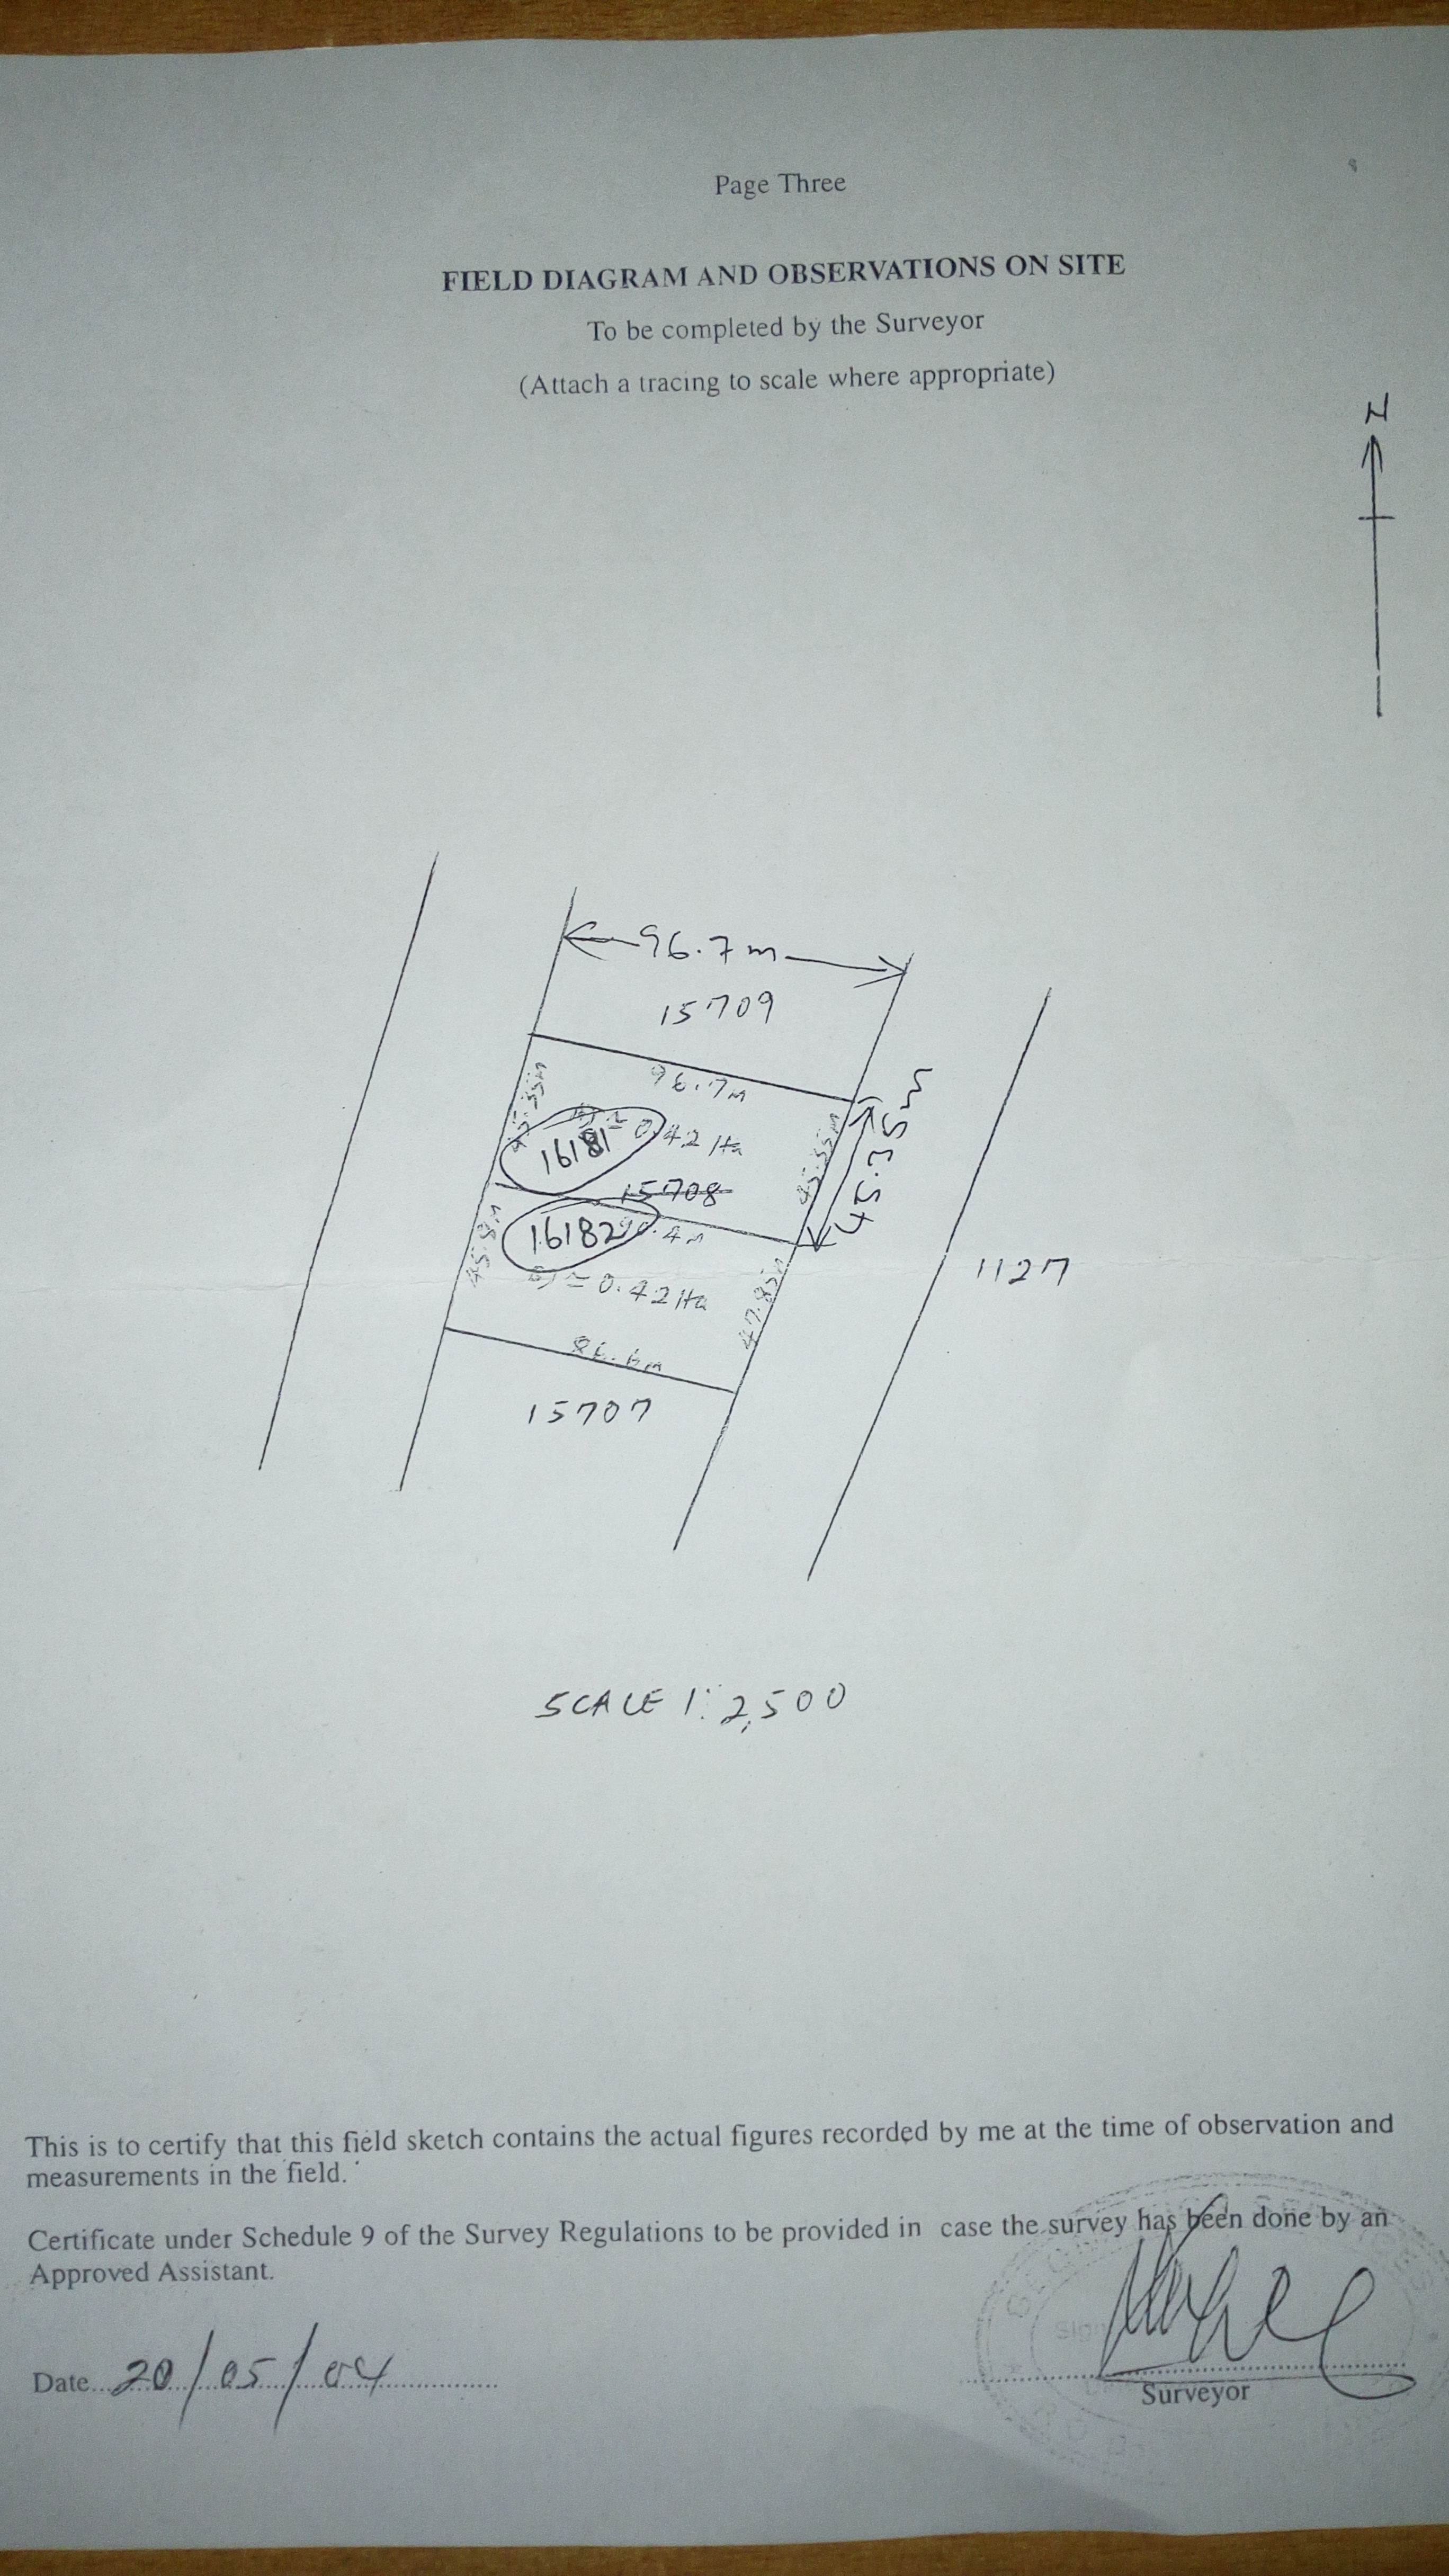 Page Three
FIELD DIAGRAM AND OBSERVATIONS ON SITE
To be completed by the Surveyor
(Attach a tracing to scale where appropriate)
N
96.7m
15709
96.7m
45.35m
45.35m
45.35m
16181
0.42 Ha
15708
16182
.4m
45.8m
≃ 0.42 Ha
47.85m
1127
86.6m
15707
SCALE 1:2,500
This is to certify that this field sketch contains the actual figures recorded by me at the time of observation and
measurements in the field.
Certificate under Schedule 9 of the Survey Regulations to be provided in case the survey has been done by an
Approved Assistant.
Date 20/05/04
Surveyor